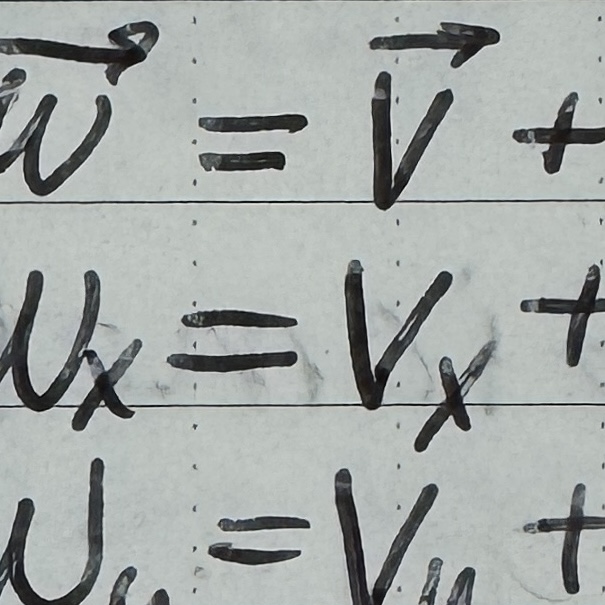 w⃗ = v⃗ +
wₓ = vₓ +
w_y = v_y +